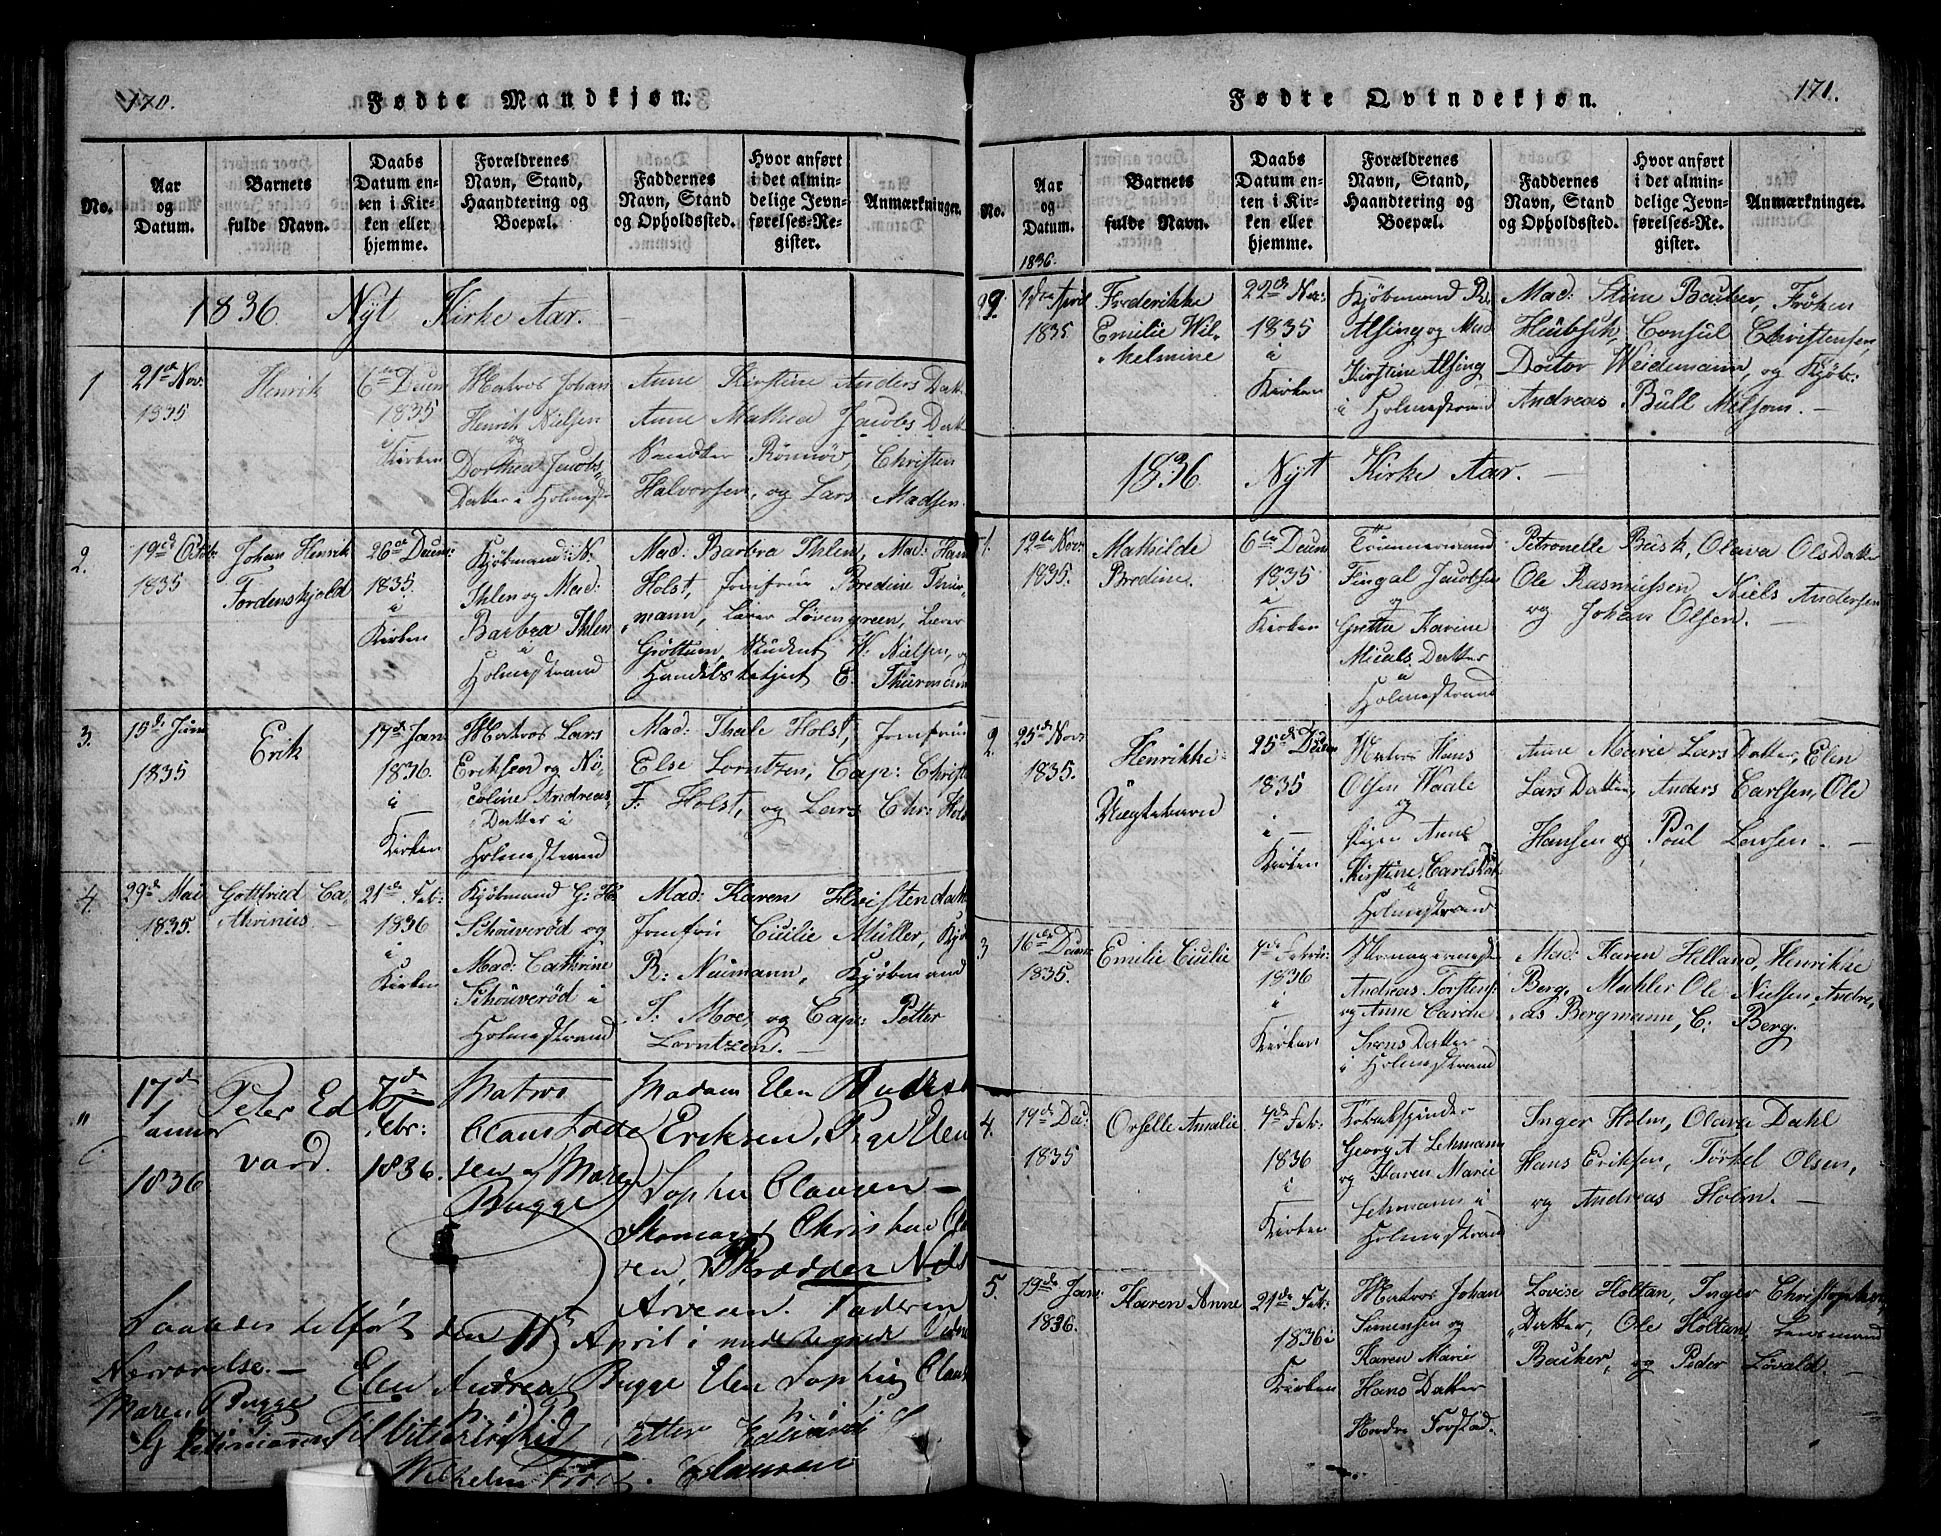 170.
Fødte Mandkjøn:
No.
Aar
og
Datum.
Barnets
fulde Navn.
Daabs
Datum en-
ten i Kir-
ken eller
hjemme.
Forældrenes
Navn, Stand,
Haandtering og
Boepæl.
Faddernes
Navn, Stand
og Opholdssted.
Hvor anført
i det almin-
delige Jevn-
førelses-Re-
gister.
Anmærkninger.
1836 Nyt Kirke Aar.
1
21de Nov:
1835
Henrik
6te Decem
1835
i
Kirken
Matros Johan
Henrik Nielsen
og
Dorthea Jacobs
Datter i Holmestr
Anne Kirstine Anders Datt:
Anne Mathea Jacobs Datt
Rønnov, Christen
Halvorsen, og Lars Madsen.
2.
19de Octob:
1835
Johan Henrik
Tordenskjold
26de Decem:
1835.
i
Kirken
Kjøbmand N.
Ihlen og Mad:
Barbra Ihlen
i
Holmestrand
Mad: Barbra Ihlen, Mad: Han
Holst, Jomfrue Bredine Thur
mann, Lærer Løvengreen, Lærer
Grøttum, Student W. Nielsen, og
Handelsbetjent E. Thurmann
3.
15de Juni
1835
Erik
17de Jan
1836.
i
Kirken
Matros Lars
Eriksen og Ni-
coline Andreas
Datter i
Holmestrand
Mad: Thale Holst, Jomfrue
Else Lorntzen, Cap: Christ
F. Holst, og Lars Chr: Holst
4.
29de Mai
1835.
Gottfried Ca-
thrinus
21de Feb:
1836
i
Kirken
Kjøbmand G: H.
Schouverød og
Mad: Cathrine
Schouverød i
Holmestrand
Mad: Karen Thristendahl
Jomfru Cicilie Müller, Kjøb
R: Naumann, Kjøbmand
T. Moe, og Cap: Petter
Lorntzen.
"
17de
Januar
1836
Peter Ed
vard.
7de
Febr:
1836.
Matros
Claus
sen og Maren
Bugge
Madam Elen
Eriksen, Pige Elen
Sophie Clausen
Skomager Christian Cla
sen, Skrædder Niels
Arvesen. Faderen
Saaledes tilført den 11te April i undertegnede
Nærværelse.
Elen Andrea Bugge Elen Sophie Claus
Maren Bugge
Til Vitterlighed
Petter Edvard
Wilhelm Clausen
171.
Fødte Qvindekjøn.
No.
Aar
og
Datum.
1836.
Barnets
fulde Navn.
Daabs
Datum en-
ten i Kir-
ken eller
hjemme.
Forældrenes
Navn, Stand,
Haandtering og
Boepæl.
Faddernes
Navn, Stand
og Opholdssted.
Hvor anført
i det almin-
delige Jevn-
førelses-Re-
gister.
Anmærkninger.
29.
1ste April
1835
Frederikke
Emilie Wil-
helmine
22de Nov:
1835
i
Kirken
Kjøbmand R.
Alsing og Mad
Kirstine Alsing
i Holmestrand
Mad: Stine Backer, Frøken
Heubsch, Consul Christensen,
Doctor Weidemann, og Kjøb:
Andreas Bull Melsom.
1836 Nyt Kirke Aar.
1.
12te Nov:
1835.
Mathilde
Bredine.
6te Decem
1835
i
Kirken
Tømmermand
Fingal Jacobsen
og
Grethe Karine
Micals Datter
i
Holmestrand
Petronelle Busk, Olava Ols Datter
Ole Rasmussen, Niels Andersen
og Johan Olsen.
2.
25de Nov:
1835.
Henrikke
Uægtebarn
25de Decem
1835
i
Kirken
Matros Hans
Olsen Waale
og
Pigen Anne
Kirstine Carls Dat
i
Holmestrand
Anne Marie Lars Datter, Elen
Lars Datter, Anders Carlsen, Ole
Hansen og Poul Larsen.
3
16de Decem
1835.
Emilie Cicilie
7de Febru:
1836
i
Kirken
Skomagermester
Andreas Torstens
og Anne Carthe
Svens Datter
i Holmestrand
Mad: Karen Helland, Henrikke
Berg, Mahler Ole Nielsen, Andre-
as Bergmann, C: Berg.
4.
19de Dec:
1835
Orselle Amalie
7de Feb:
1836
i
Kirken
Tobakspinder
Georg A Lehmann
og Karen Marie
Lehmann i
Holmestrand
Inger Holm, Olava Dahl
Hans Eriksen, Torkel Olsen,
og Andreas Holm.
5.
19de Jan:
1836.
Karen Anne
21de Feb:
1836 i
Kirken
Matros Johan
Simensen og
Karen Marie
Hans Datter
Nordre Forstad.
Lovise Holtan, Inger Christophers
Datter, Ole Holtan, Lensmand
Backer, og Peder Løvald.